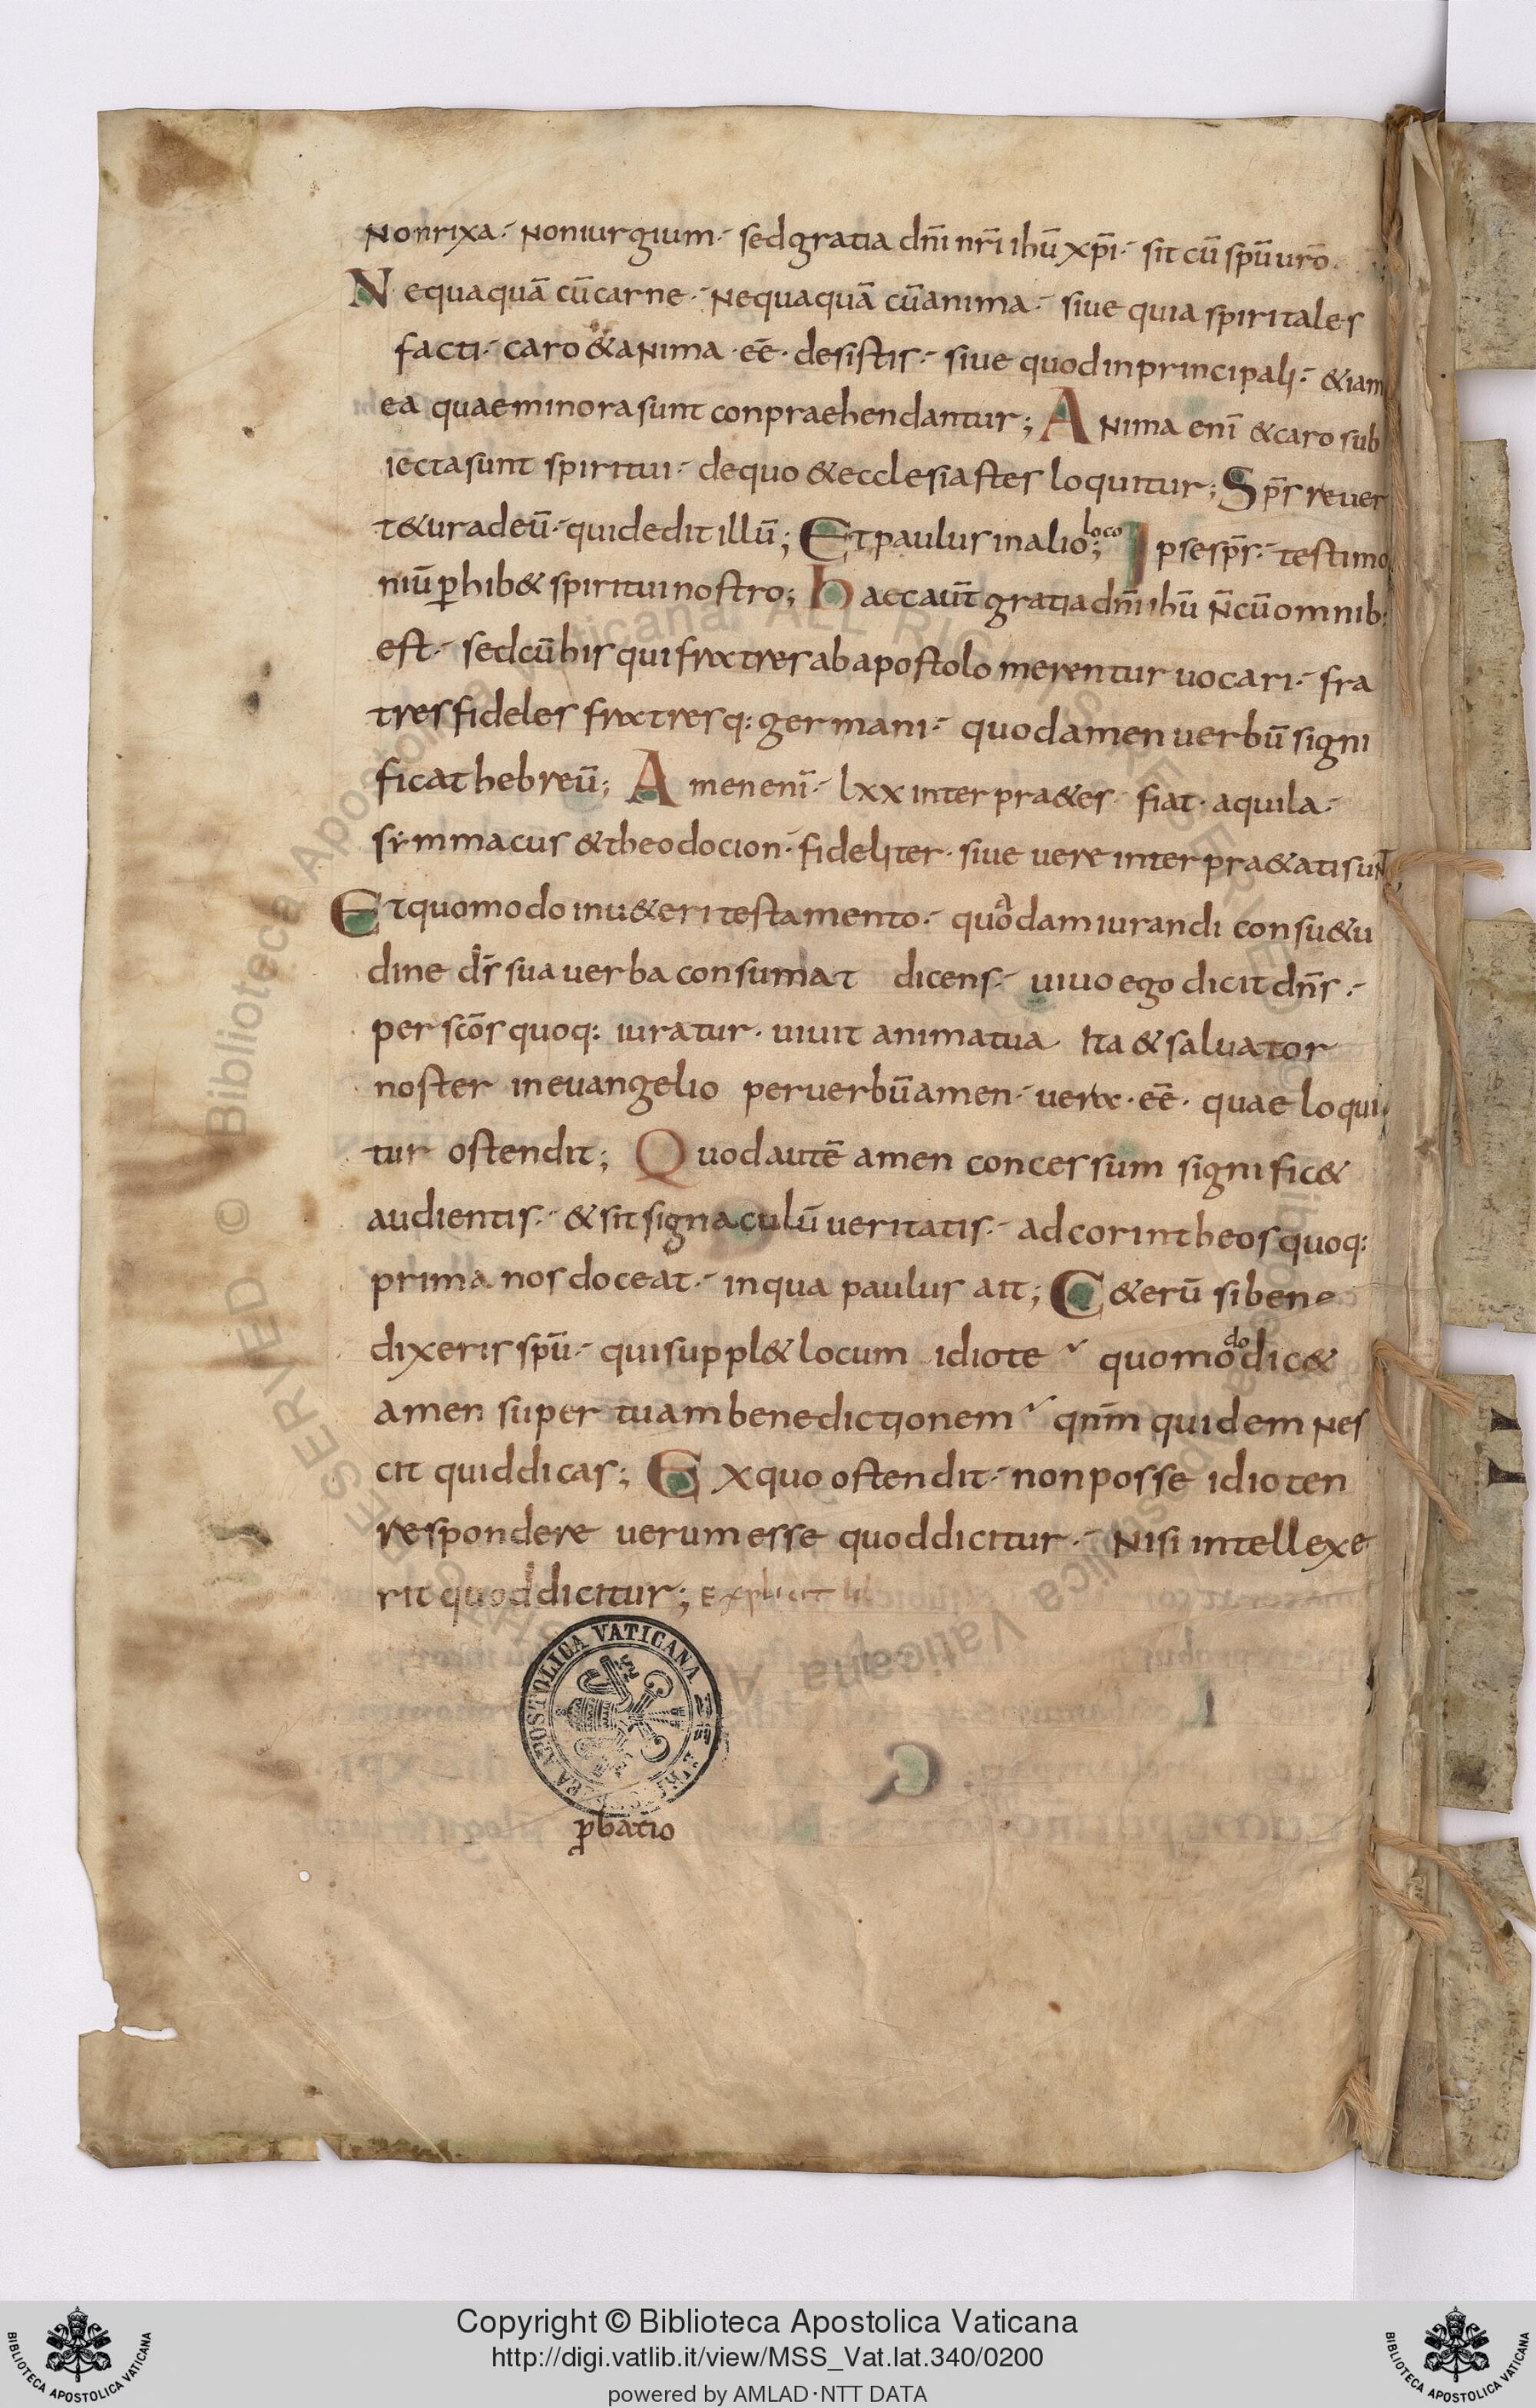 Non rixa. Non iurgium. sed gratia dn̄i nr̄i ihū xp̄i. sit cū spū uro.
Nequaquā cū carne. Nequaquā cū anima. siue quia spiritales
facti. caro & aNima. eē. desistis. siue quod in principali. & iam
ea quae minora sunt conpraehendantur; ANima enī & caro sub
iecta sunt spiritui. de quo & ecclesiastes loquitur; Sp̄s reuer
t&ur ad eū. qui dedit illū; Et paulus in alio loco; Ipse sp̄s. testimo
niū ꝑhib& spiritui nostro; haec aūt gratia dn̄i ihū n̄ cū omnib:
est. sed cū his qui fratres ab apostolo merentur uocari. fra
tres fideles fratresq: germani. quod amen uerbū signi
ficat hebreū; Amen enī. lxx interpra&es. fiat. aquila.
simmacus & theodocion. fideliter. siue uere interpra&ati suNT;
Et quomodo in u&eri testamento. quādam iurandi consu&u
dine dr̄ sua uerba consumat dicens. uiuo ego dicit dn̄s.
per scōs quoq: iuratur. uiuit anima tua. Ita & saluator
noster in euangelio per uerbū amen. uera. eē. quae loqui
tur ostendit; Quod autē amen concessum signific&
audientis. & sit signaculū ueritatis. ad corintheos quoq:
prima nos doceat. in qua paulus ait; C&erū si bene
dixeris spū. qui suppl& locum idiote quomodo dic&
amen super tuam benedictionem qnm̄ quidem Nes
cit quid dicas; Ex quo ostendit. non posse idioten
respondere uerum esse quod dicitur. Nisi intellexe
rit quod dicitur; Explicit lib
ꝓbatio
APOSTOLICA VATICANA
Copyright © Biblioteca Apostolica Vaticana
http://digi.vatlib.it/view/MSS_Vat.lat.340/0200
powered by AMLAD·NTT DATA
BIBLIOTECA APOSTOLICA VATICANA
BIBLIOTECA APOSTOLICA VATICANA